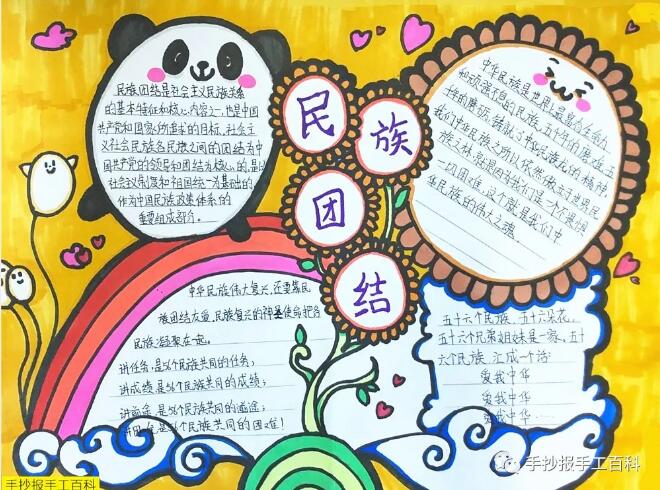 民族团结
民族团结是社会主义民族关系
的基本特征和核心内容之一,也是中国
共产党和国家所追求的目标,社会主
义社会民族各民族之间的团结为中
国共产党的领导和团结为核心的,是以
社会主义制度和祖国统一为基础的
作为中国民族政策体系的
重要组成部分。
中华民族是世界上最富有生命力
和顽强不息的民族,五千年的
我们中华民族之所以依然傲立于世界民
族之林
一切困难,这个就是我们中
华民族的伟大之魂。
中华民族伟大复兴,还要靠民
族团结友谊,民族复兴的神圣使命把各
民族凝聚在一起。
讲任务,是56个民族共同的任务;
讲成绩是56个民族共同的成绩;
讲前途,是56个民族共同的前途;
讲困难是56个民族共同的困难!
五十六个民族,五十六朵花,
五十六个兄弟姐妹是一家。五十
六个民族,汇成一个话:
爱我中华
爱我中华
爱我中华……
手抄报手工百科
手抄报手工百科